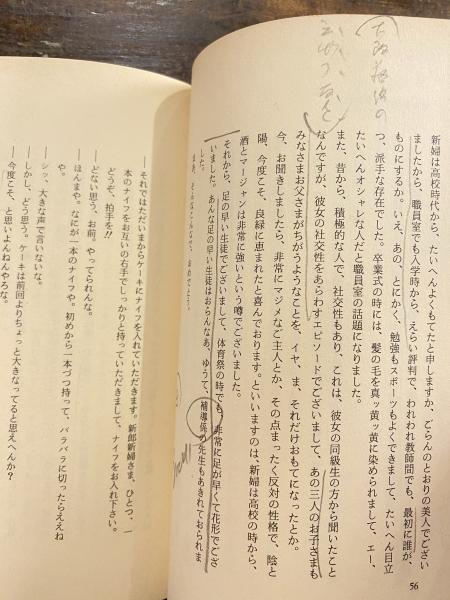 新婦は高校時代から、たいへんよくもてたと申しますか、ごらんのとおりの美人でござい
ましたから、職員室でも入学時から、えらい評判で、われわれ教師間でも、最初に誰が、
ものにするか。いえ、あの、とにかく、勉強もスポーツもよくできまして、たいへん目立
つ、派手な存在でした。卒業式の時には、髪の毛を真ッ黄ッ黄に染められまして、エー、
たいへんオシャレな人だと職員室の話題になりました。
また、昔から、積極的な人で、社交性もあり、これは、彼女の同級生の方から聞いたこと
なんですが、彼女の社交性をあらわすエピソードでございまして、あの三人のお子さまも
みなさまお父さまがちがうようなことを、イヤ、ま、それだけおもてになったとか。
今、お聞きしましたら、非常にマジメなご主人とか、その点まったく反対の性格で、陰と
陽、今度こそ、良縁に恵まれたと喜んでおります。といいますのは、新婦は高校の時から、
酒とマージャンは非常に強いという噂でございました。
それから、足の早い生徒でございまして、体育祭の時でも、非常に足が早くて花形でござ
いました。あんな足の早い生徒はおらんなあ、ゆうて、補導係の先生もあきれておられま
した。
まあ、そんなこんなで、おめでとう。
56
──それではただいまからケーキにナイフを入れていただきます。新郎新婦さま、ひとつ、一
本のナイフをお互いの右手でしっかりと持っていただきまして、ナイフをお入れ下さい。
どうぞ、拍手を!!
──どない思う、お前。やってられんな。
──ほんまや。なにが一本のナイフや。初めから一本づつ持って、バラバラに切ったらええね
や。
──シッ、大きな声で言いないな。
──しかし、どう思う。ケーキは前回よりちょっと大きなってると思えへんか？
──今度こそ、と思いよんねんやろな。